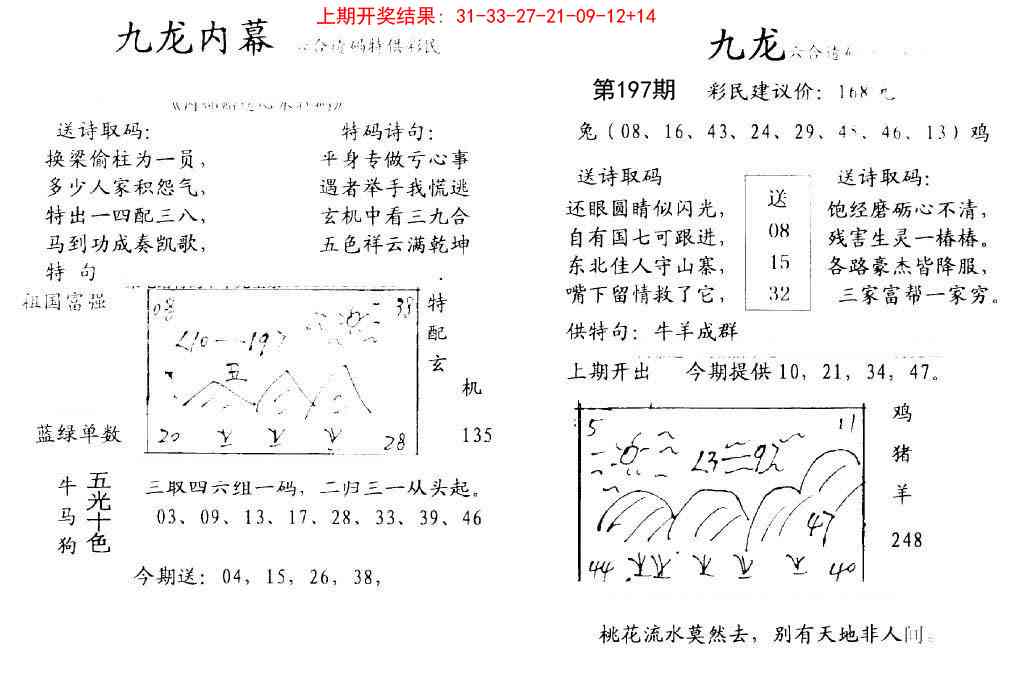 上期开奖结果：31-33-27-21-09-12+14
九龙内幕
合 码特供彩民
送诗取码：
换梁偷柱为一员，
多少人家积怨气，
特出一四配三八，
马到功成奏凯歌，
特码诗句：
平身专做亏心事
遇者举手我慌逃
玄机中看三九合
五色祥云满乾坤
特 句
祖国富强
蓝绿单数
08
38
五
20
28
特
配
玄
机
135
牛
马
狗
五光十色
三取四六组一码，二归三一从头起。
03、09、13、17、28、33、39、46
今期送：04，15，26，38，
九龙
六合
第197期 彩民建议价：168
兔（08、16、43、24、29、4 、46、13）鸡
送诗取码
还眼圆睛似闪光，
自有国七可跟进，
东北佳人守山寨，
嘴下留情救了它，
送
08
15
32
送诗取码：
饱经磨砺心不清，
残害生灵一椿椿。
各路豪杰皆降服，
三家富帮一家穷。
供特句：牛羊成群
上期开出 今期提供10，21，34，47。
5
11
47
44
40
鸡
猪
羊
248
桃花流水莫然去，别有天地非人间